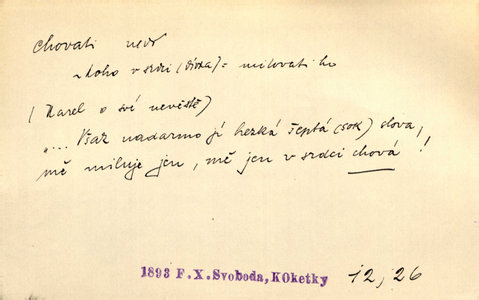 chovati ned
~ koho v srdci (dívka) = milovati ho
(Karel o své nevěstě)
„... Však nadarmo jí hezká šeptá (sok) slova,
mě miluje jen, mě jen v srdci chová!
1893 F.X.Svoboda, KOketky 12, 26